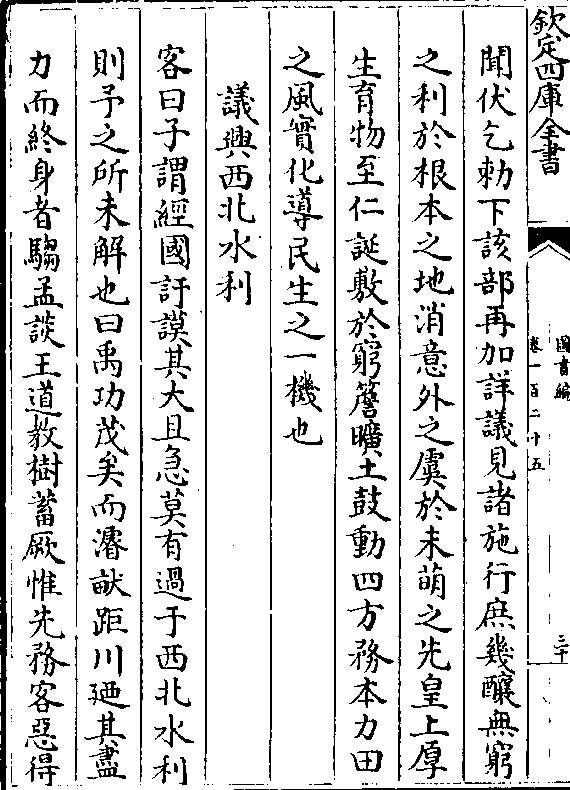 欽定四庫全書
圖書編
卷一百二十五
三十
聞伏乞勅下該部再加詳議見諸施行庶幾釀無窮
之利於根本之地消意外之虞於未萌之先皇上厚
生育物至仁誕敷於窮簷曠土鼓動四方務本力田
之風實化導民生之一機也
議興西北水利
客曰子謂經國訏謨其大且急莫有過于西北水利
則予之所未解也曰禹功茂矣而濬畎距川廼其盡
力而終身者騶孟談王道教樹蓄厥惟先務客惡得